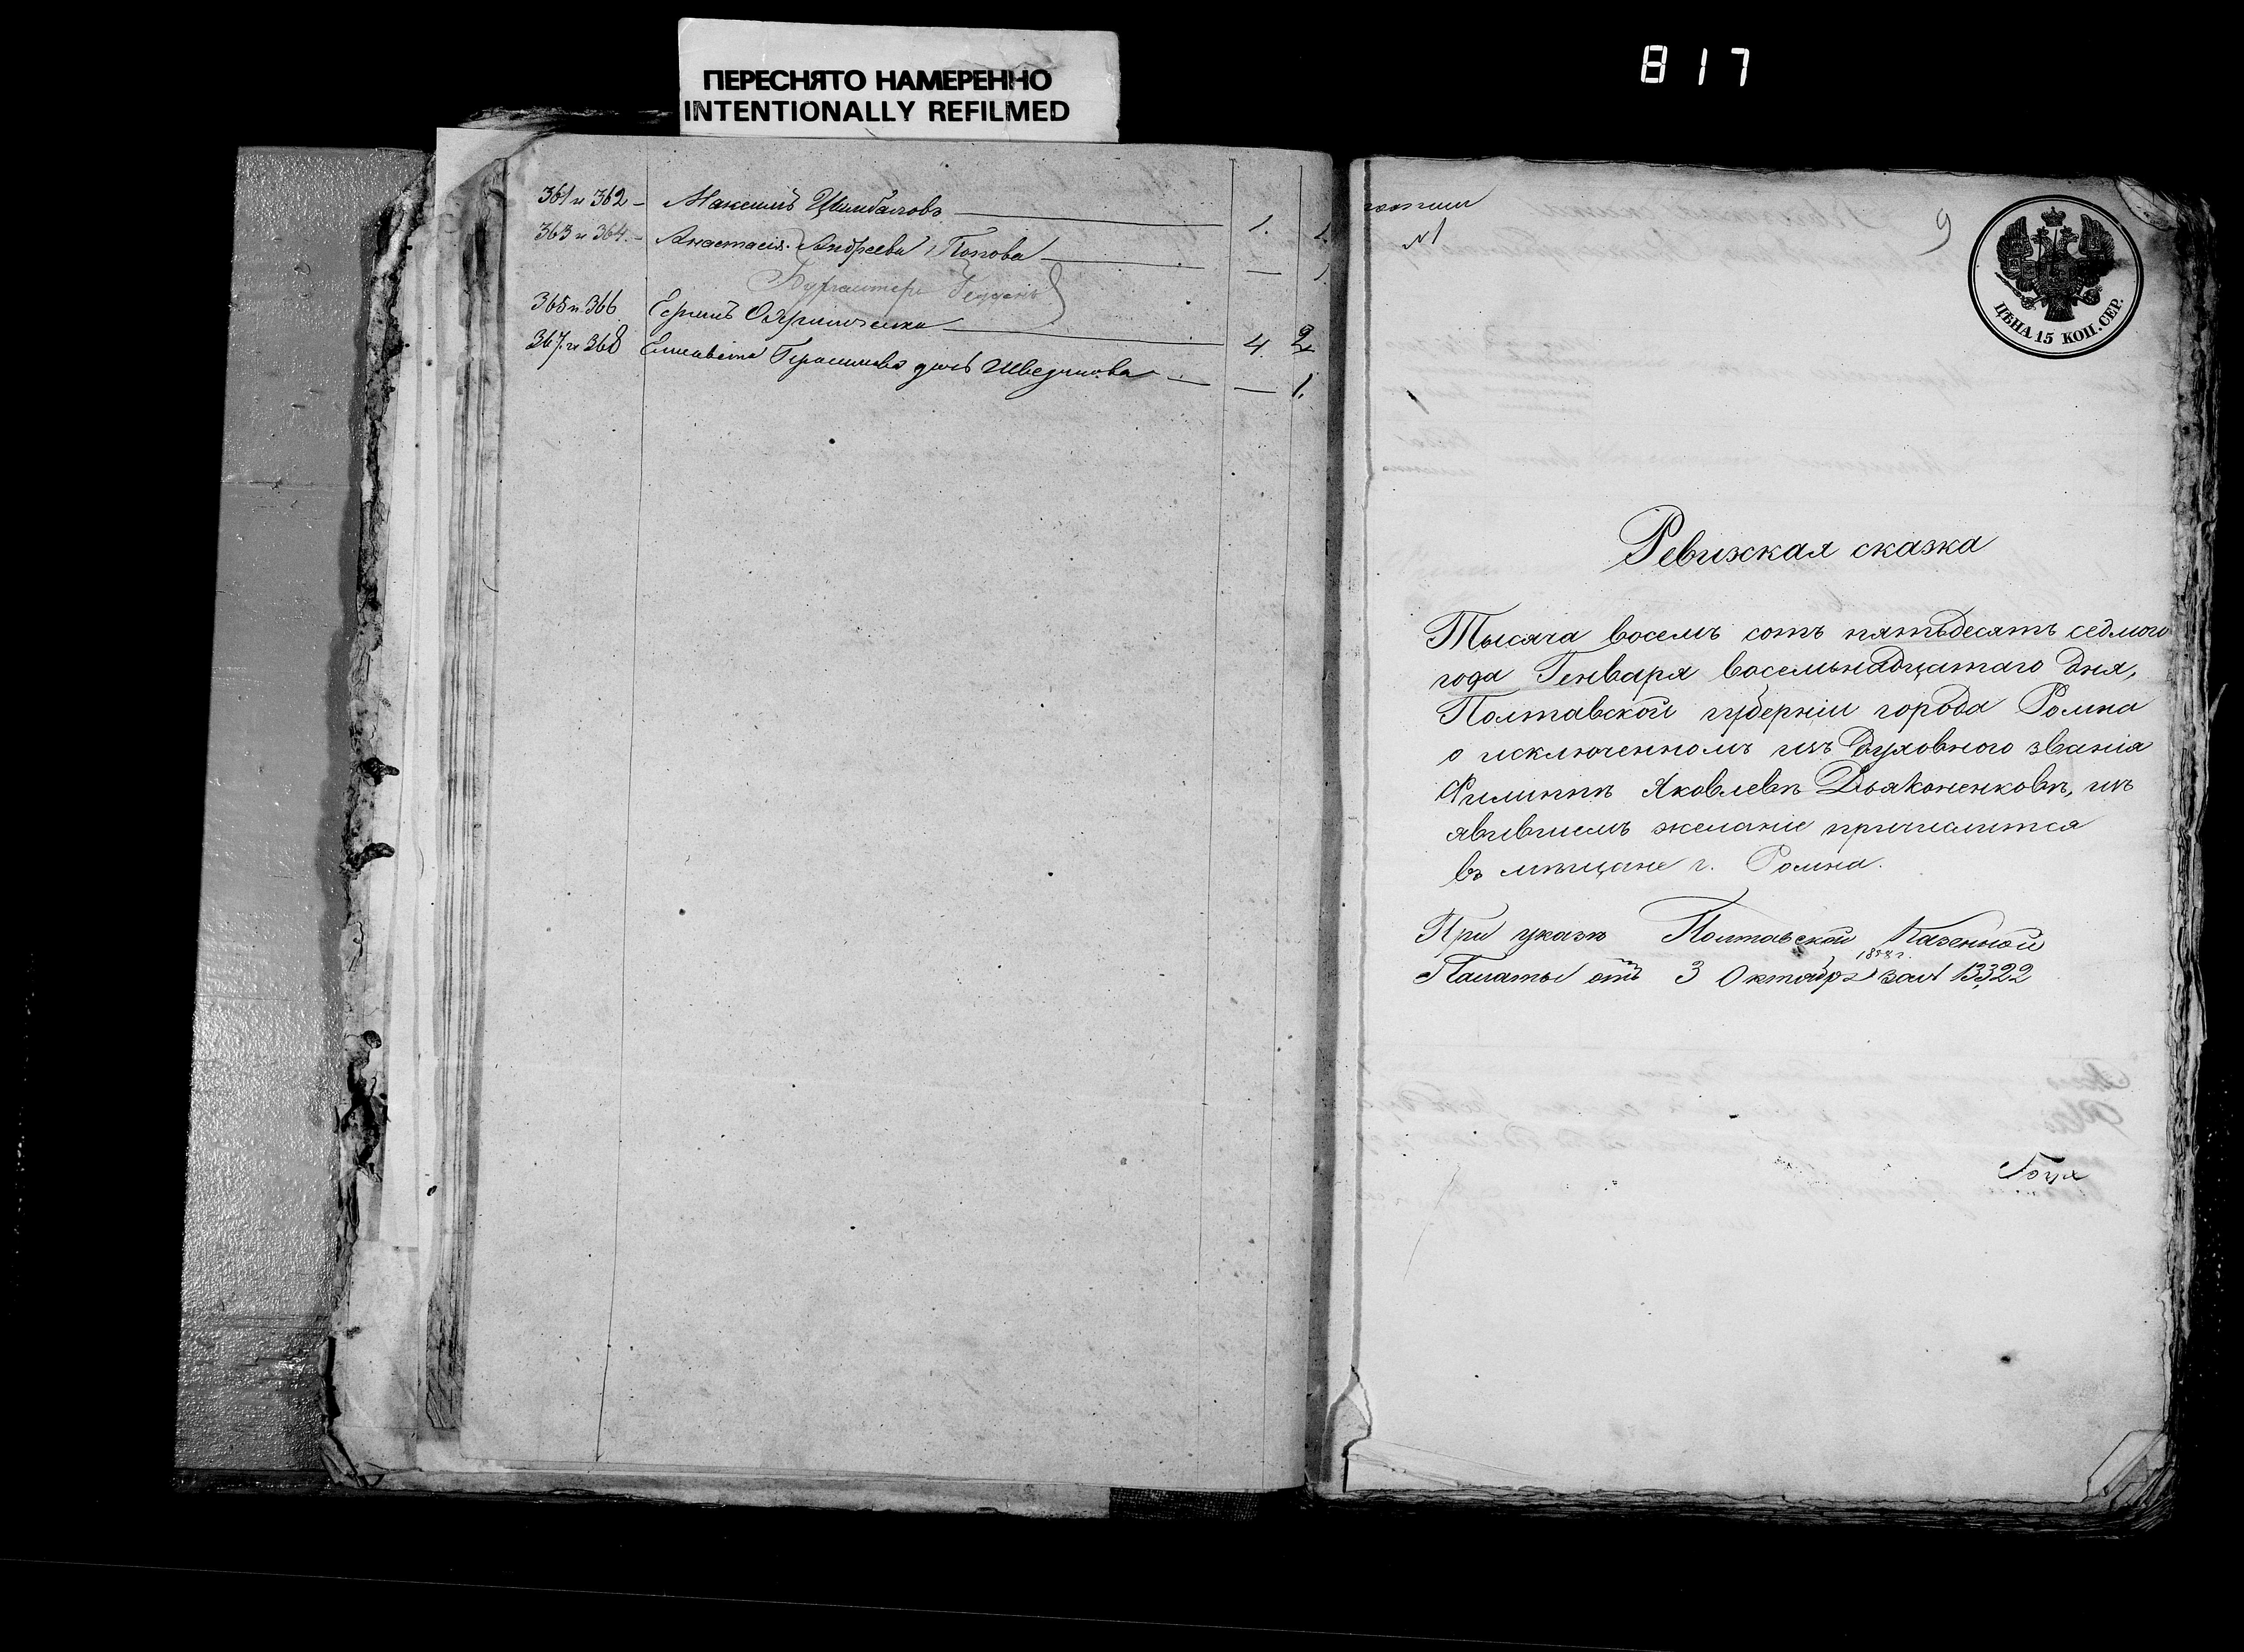 ПЕРЕСНЯТО НАМЕРЕННО
INTENTIONALLY REFILMED
817
361 и 362 – Максимъ Цимбаловъ 1. 1.
363 и 364. – Анастасия Андреева Попова — 1.
Бургомистръ
365 и 366. 4. 2
367. и 368 Елисавета Герасимова дочь Шведчикова — — 1.
№ 1
9
ЦѢНА 15 КОП. СЕР.
Ревижская сказка
Тысяча восемъ сотъ пятьдесятъ седмого
года Генваря восемьнадцатаго дня,
Полтавской губерніи города Ромна
о исключенномъ изъ Духовного званія
Филиппѣ Яковлевѣ Дьяконенковѣ, изъ
явившемъ желаніе причислится
въ мѣщане г. Ромна.
При указѣ Полтавской Казенной
Палаты отъ 3 Октября за № 13322